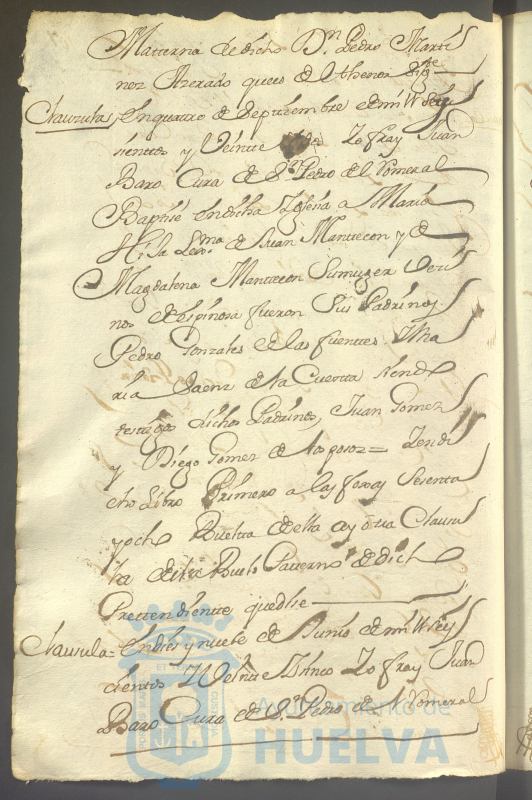 Matterna de dicho Dn. Pedro Marti
nez Herrado que es del thenor sigte
Clausula, Enquatro de Septiembre de mil y seis
sientos y Veinte Yo fray Juan
Baro Cura de Sn. Pedro del Romeral
Baptise en dicha Yglesia a Maria
Hija Lexma. de Juan Mantecon y de
Magdalena Mantecon Sumuger Vesi
nos de espinosa fueron Sus Padrinos
Pedro Gonzales de las fuentes Y Ma
ria Saenz de la Cuesta siendo
testigos dichos Padrinos, Juan Gomez
y Diego Gomez de = Y en di
cho Libro Primero a las foxas Sesenta
y ocho Buelta de ella ay otra Clausu
la de Paterno de dicho
Prettendiente que dise
Clausula = En dies y nuebe de Junio de mil y seis
cientos Y Veinte Y sinco Yo fray Juan
Baro Cura de Sn. Pedro de el Romeral
Ayuntamiento de
HUELVA